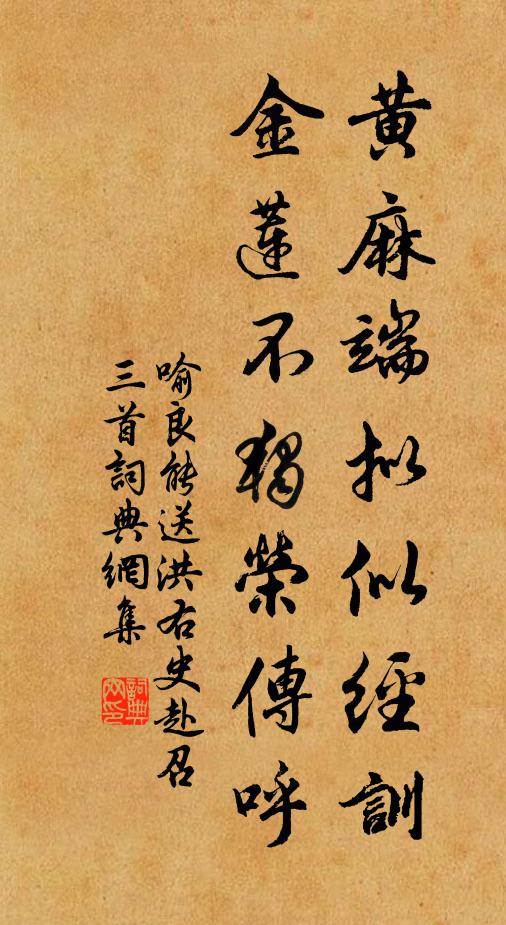 黃麻端拟似經訓
金蓮不独榮傳呼
喻良能送洪右史赴召
三首詞典網集
詞典
网印